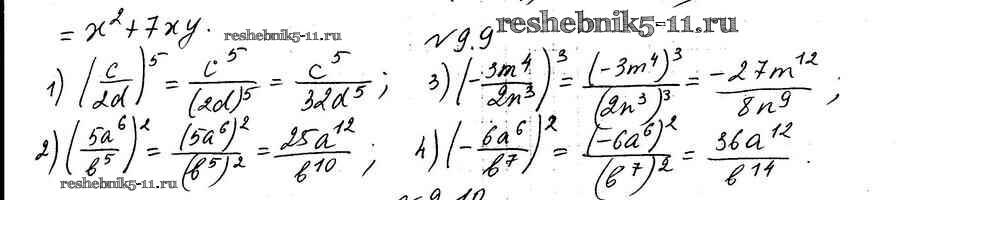 = x² + 7xy. reshebnik5-11.ru
№9.9 reshebnik5-11.ru
1) (c/2d)⁵ = c⁵/(2d)⁵ = c⁵/32d⁵; 3) (-3m⁴/2n³)³ = (-3m⁴)³/(2n³)³ = -27m¹²/8n⁹;
2) (5a⁶/b⁵)² = (5a⁶)²/(b⁵)² = 25a¹²/b¹⁰; 4) (-6a⁶/b⁷)² = (-6a⁶)²/(b⁷)² = 36a¹²/b¹⁴.
reshebnik5-11.ru